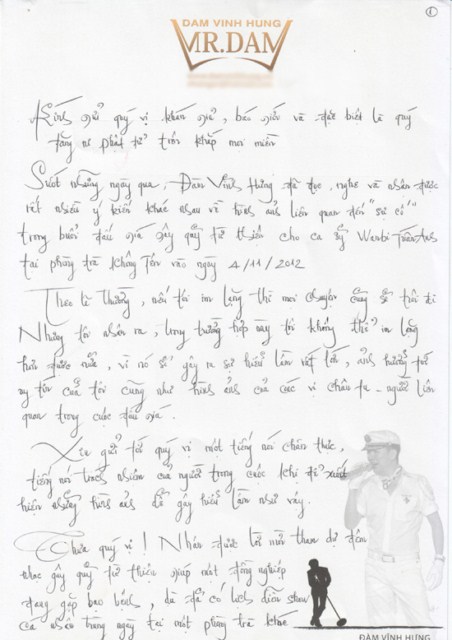 ①
DAM VINH HUNG
MR.DAM
Kính gửi quý vị khán giả, báo giới và đặc biệt là quý
tăng ni phật tử trên khắp mọi miền
Suốt những ngày qua, Đàm Vĩnh Hưng đã đọc, nghe và nhận được
rất nhiều ý kiến khác nhau về hình ảnh liên quan đến "sự cố"
trong buổi đấu giá gây quỹ từ thiện cho ca sỹ Wanbi Tuấn Anh
tại phòng trà Không Tên vào ngày 4/11/2012
Theo lẽ thường, nếu tôi im lặng thì mọi chuyện cũng sẽ trôi đi
Nhưng tôi nhận ra, trong trường hợp này tôi không thể im lặng
hơn được nữa, vì nó sẽ gây ra sự hiểu lầm rất lớn, ảnh hưởng tới
uy tín của tôi cũng như hình ảnh của các vị chân tu - người liên
quan trong cuộc đấu giá.
Xin gửi tới quý vị một tiếng nói chân thực,
tiếng nói trách nhiệm của người trong cuộc khi để xuất
hiện những hình ảnh dễ gây hiểu lầm như vậy.
Thưa quý vị! Nhận được lời mời tham dự đêm
nhạc gây quỹ từ thiện giúp một đồng nghiệp
đang gặp bạo bệnh, dù đã có lịch diễn show
ca nhạc trùng ngày tại một phòng trà khác
ĐÀM VĨNH HƯNG